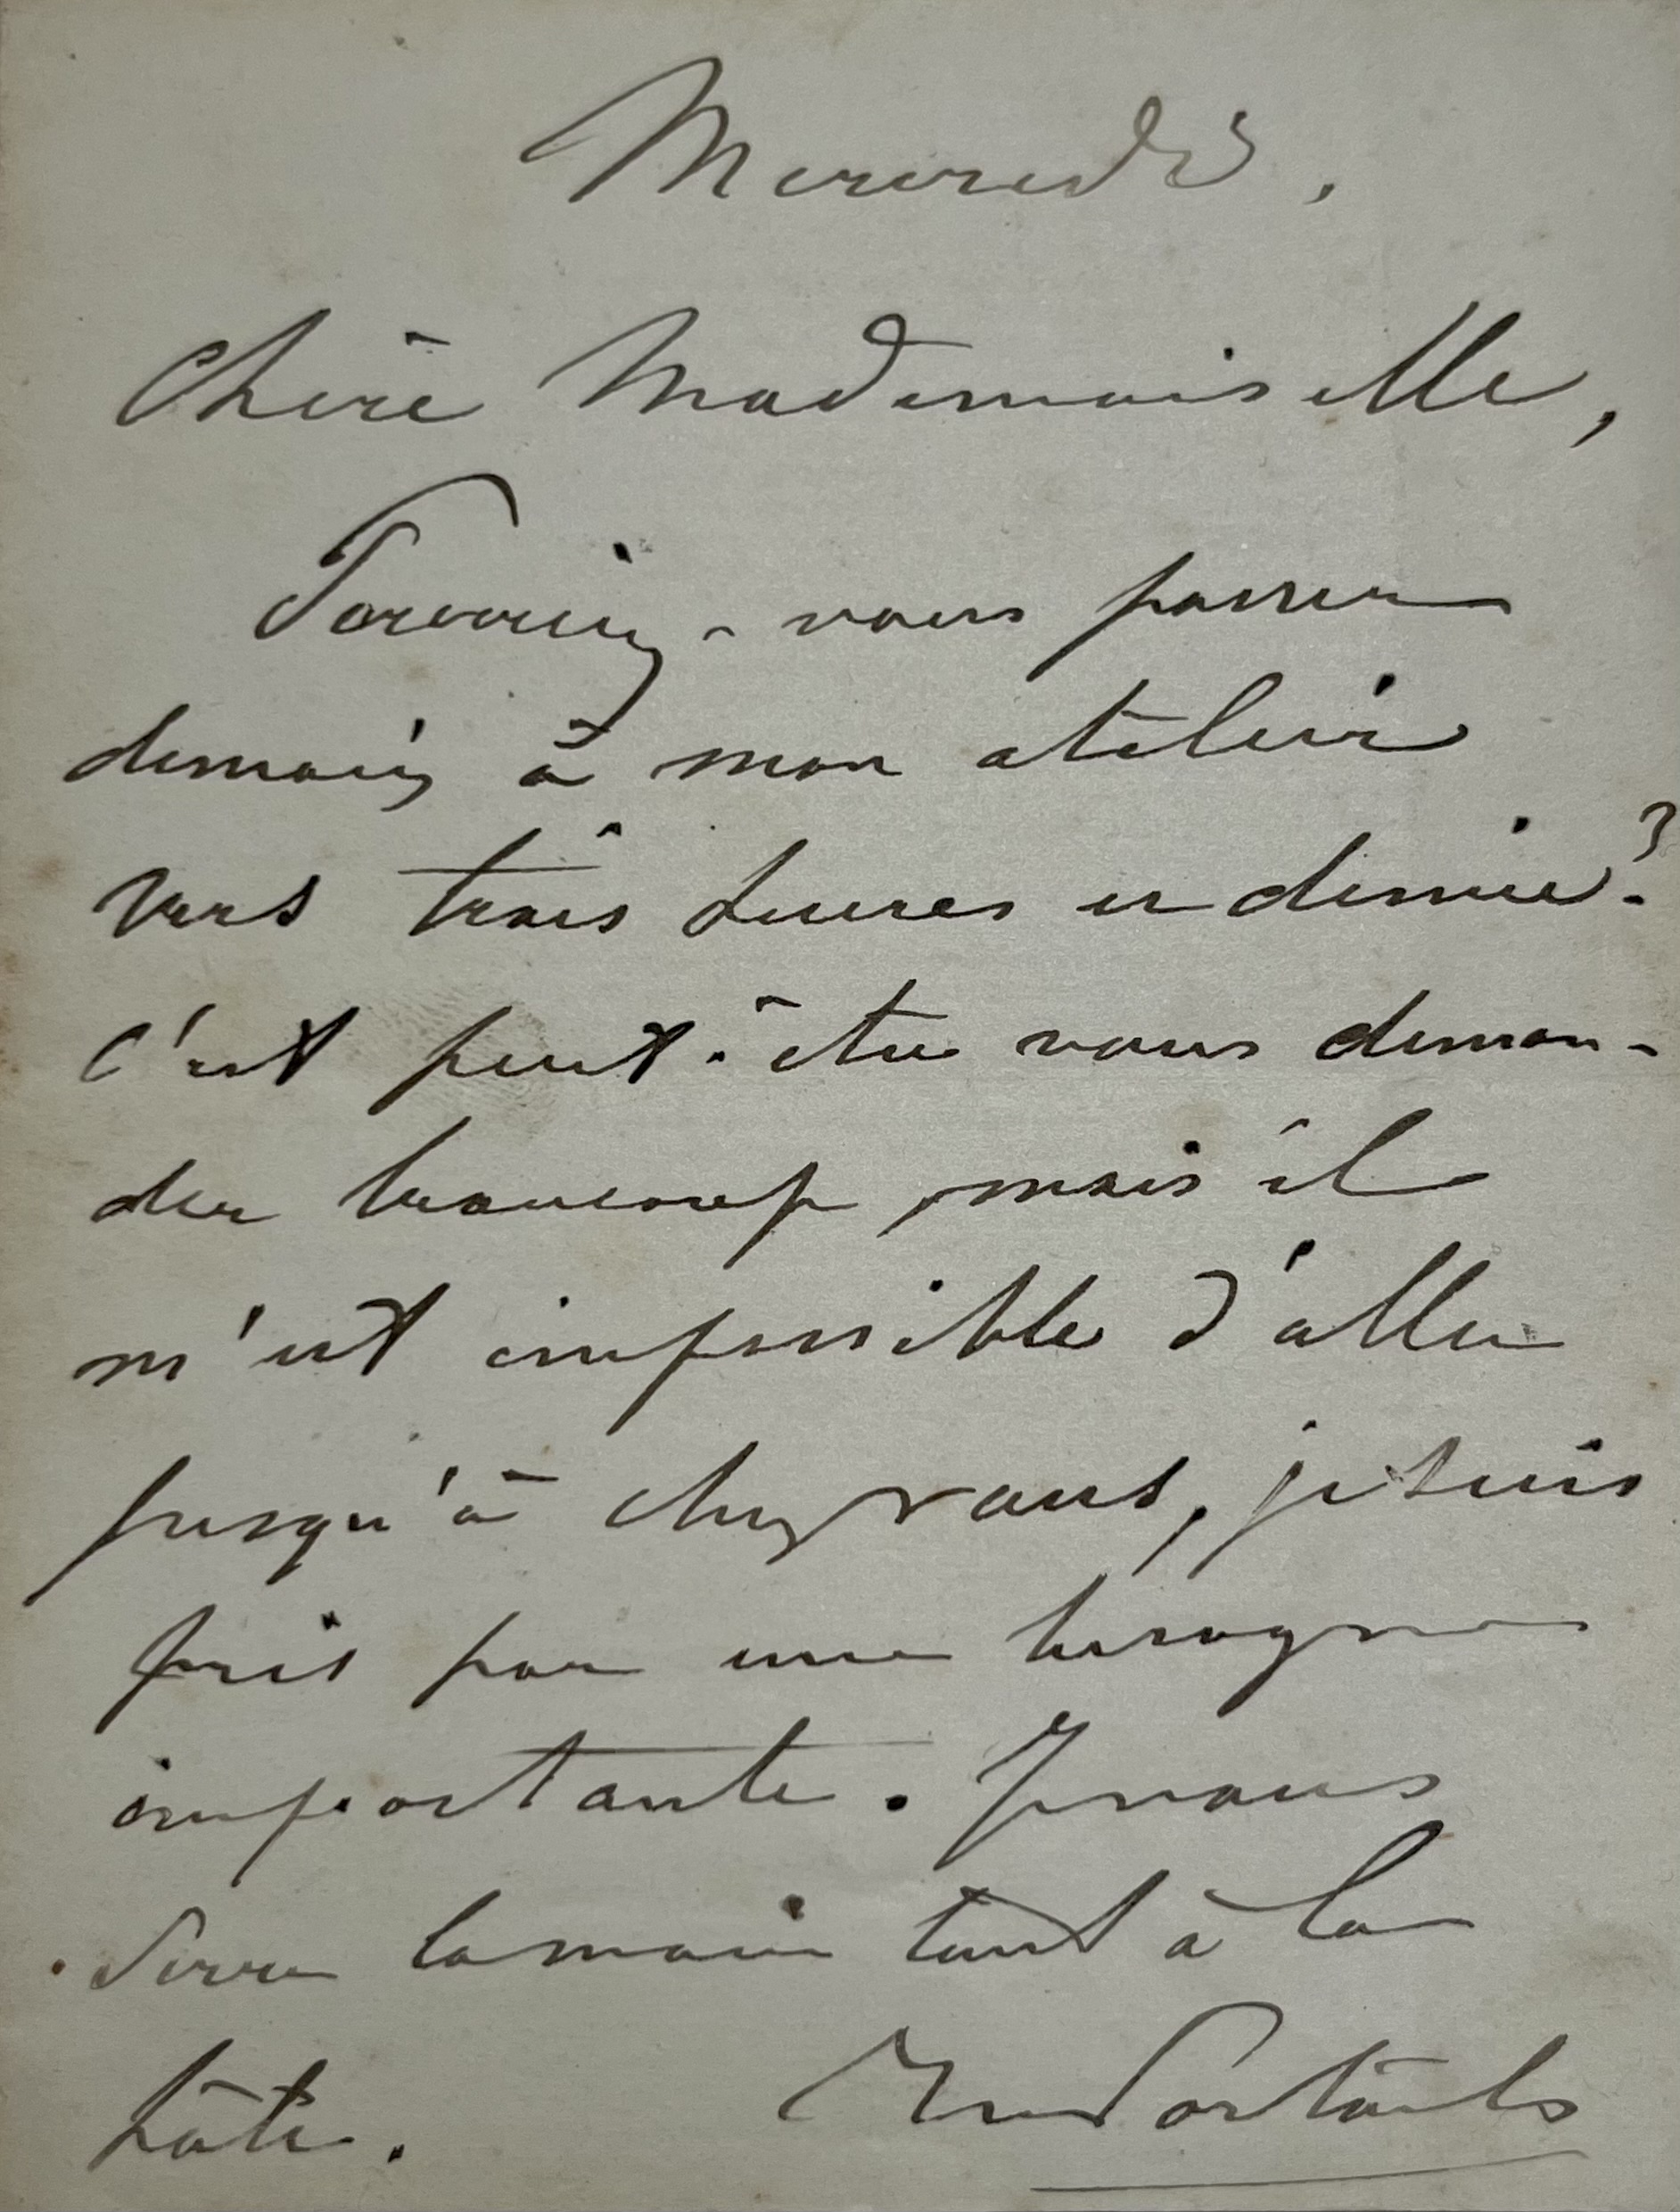 Mercredi,
Chère Mademoiselle,
Pourriez-vous passer
demain à mon atelier
vers trois heures et demie?
C'est peut-être vous deman-
der beaucoup, mais il
m'est impossible d'aller
jusqu'à chez vous, je suis
pris par une besogne
importante. Je vous
serre la main tout à la
hâte.
Portaels